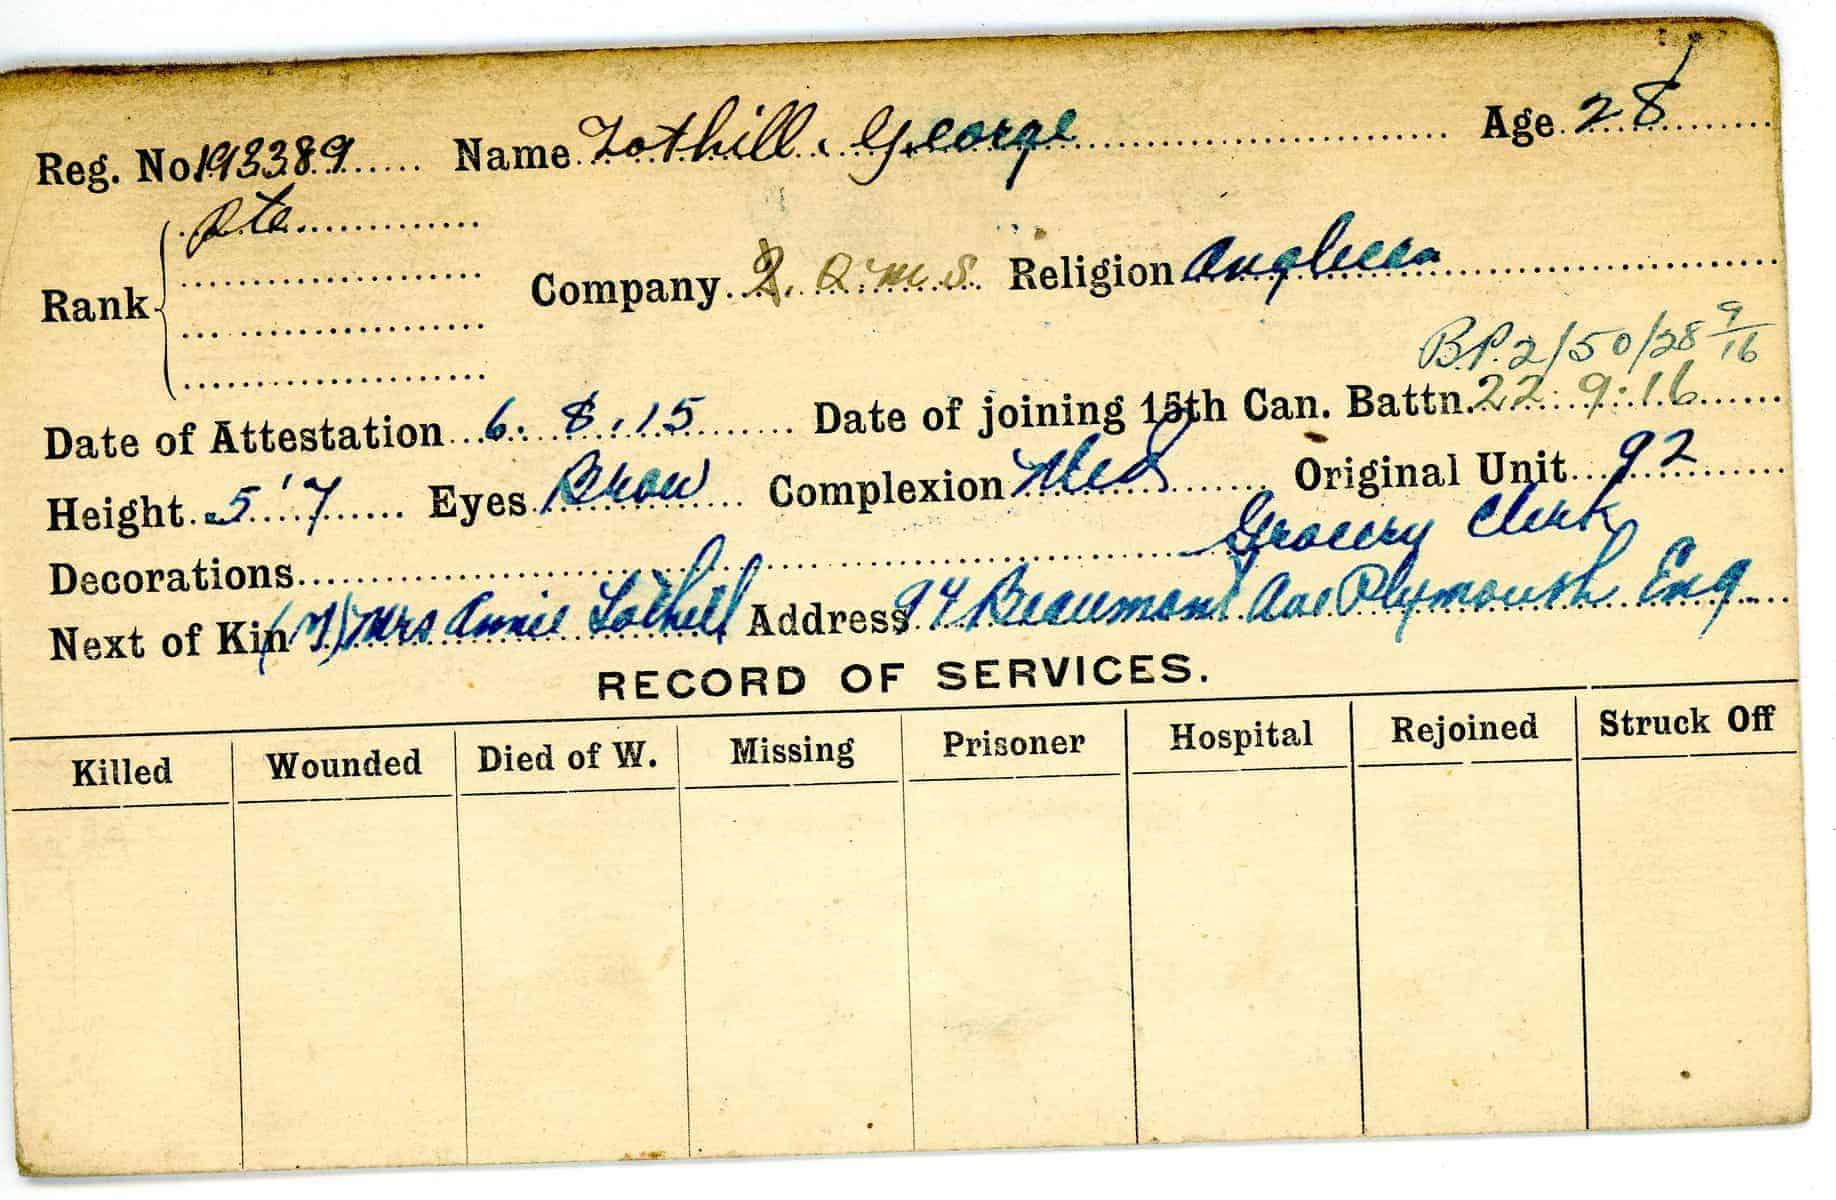 Reg. No. 193389 Name Tothill. George Age 28
Pte
Rank Company Q.M.S. Religion Anglican
B.P. 2/50/28 9/16
Date of Attestation 6.8.15 Date of joining 15th Can. Battn. 22.9.16
Height 5'7 Eyes Brow Complexion Med Original Unit 92
Decorations Grocery Clerk
Next of Kin (M) Mrs Annie Tothill Address 94 Beaumont Ave Plymouth Eng
RECORD OF SERVICES.
Killed Wounded Died of W. Missing Prisoner Hospital Rejoined Struck Off